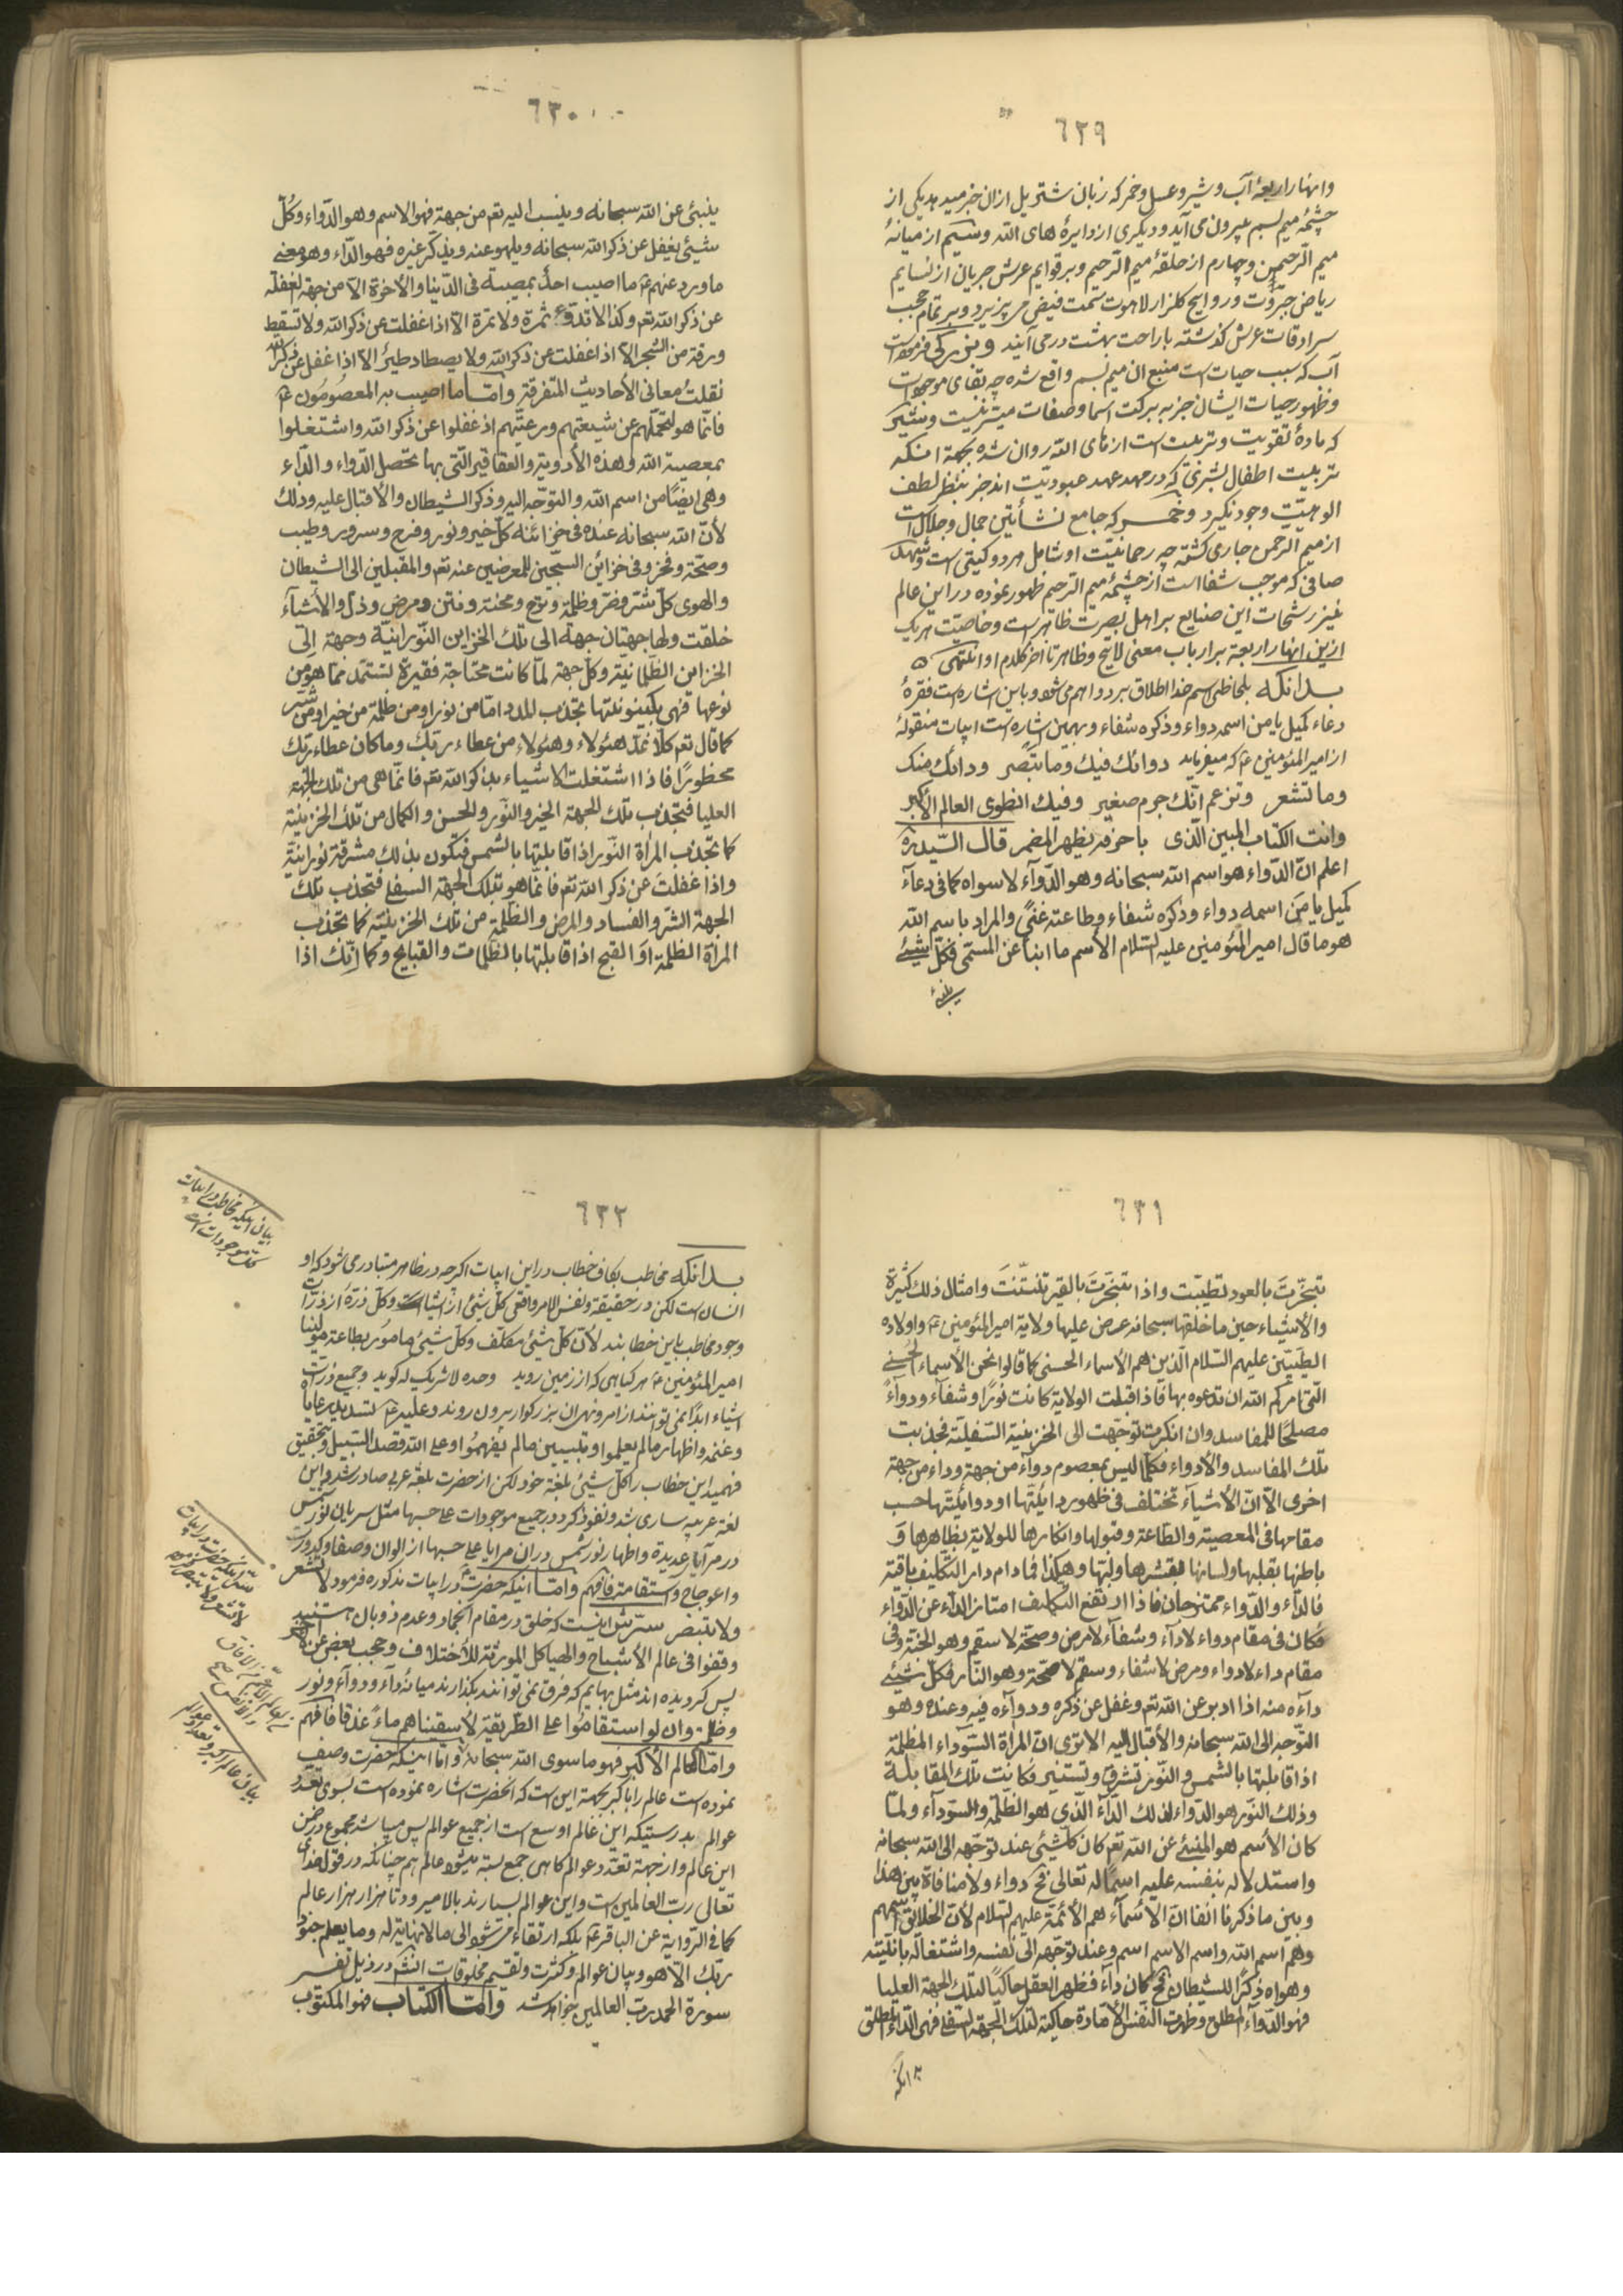 ٦٢٩
وانهار اربعهٔ آب و شیر و عسل و خمر که زبان شتر یل ازان خبر میدهد یکی از
چشمهٔ میم بسم بیرون می آید و دیگری از دایرهٔ های الله و سیم از میانهٔ
میم الرحمن و چهارم از حلقهٔ میم الرحیم و بر قوایم عرش جریان از نسایم
ریاض جبروت و روایح گلزار لاهوت سمت فیض می پذیرد و بر تمام حجب
سرادقات عرش گذشته باراحت بهشت درمی آیند و
آب که سبب حیات است منبع ان میم بسم واقع شده چه بقای موجودات
و ظهور حیات ایشان جز به برکت اسما و صفات میسر نیست و شیر
که مادهٔ تقویت و تربیت است از های الله روان شده بجهة انکه
تربیت اطفال بشری که در مهد عهد عبودیت اند جز بنظر لطف
الوهیت وجود نگیرد و خمر که جامع نشأتین جمال و جلال است
از میم الرحمن جاری گشته چه رحمانیت او شامل هر دو کیتی است و شهد
صافی که موجب شفا است از چشمهٔ میم الرحیم ظهور نموده در این عالم
نیز رشحات این صنایع بر اهل بصیرت ظاهر است و خاصیت هر یک
ازین انهار اربعة بر ارباب معنی لایح و ظاهر تا آخر کلام او انتهی ه
بدانکه بلحاظی اسم خدا اطلاق بر دوا هم می شود و باین اشاره است فقرهٔ
دعاء کمیل یا من اسمه دواء و ذکره شفاء و بهمین اشاره است ابیات منقولهٔ
از امیر المؤمنین ع که میفرماید دوائک فیک وما تبصر ودائک منک
وما تشعر وتزعم انّک جرم صغیر وفیک انطوی العالم الأکبر
وانت الکتاب المبین الّذی باحرفه یظهر المضمر قال السّید ره
اعلم انّ الدّواء هو اسم الله سبحانه وهو الدّوآء لا سواه کما فی دعآء
کمیل یا من اسمه دواء وذکره شفاء وطاعته غنی والمراد باسم الله
هو ما قال امیر المؤمنین علیه السّلام الأسم ما انبأ عن المسمّی فکلّ شیئ
ینبئ
٦٣٠
ینبئ عن الله سبحانه وینسب الیه تعـ من جهة فهو الاسم وهو الدّواء وکلّ
شیئ یغفل عن ذکر الله سبحانه ویلهو عنه ویذکّر غیره فهو الدّاء وهو معنی
ما ورد عنهم ع ما اصیب احد بمصیبة فی الدّنیا والأخرة الاّ من جهة الغفلة
عن ذکر الله تعـ وکذا لا تدقع ثمرة ولا تمرة الاّ اذا غفلت عن ذکر الله ولا تسقط
ورقة من الشجر الاّ اذا غفلت عن ذکر الله ولا یصطاد طیرٌ الاّ اذا غفل عن ذکر الله
نقلتُ معانی الأحادیث المتفرقة وامّا ما اصیب به المعصومون ع
فانّما هو لتحمّلهم عن شیعتهم ورعیّتهم اذ غفلوا عن ذکر الله واشتغلوا
بمعصیة الله وهذه الأدویة والعقاقیر الّتی بها تحصل الدّواء والدّاء
وهی ایضًا من اسم الله والتوجّه الیه وذکر الشیطان والأقبال علیه وذلک
لأنّ الله سبحانه عنده فی خزائنه کلّ خیر ونور وفرح وسرور وطیب
وصحّة وفخر وفی خزائن السّجّین للمعرضین عنه تعـ والمقبلین الی الشیطان
والهوی کلّ شرّ وضرّ وظلمة وترح ومحنة ونتن ومرض وذلّ والأشیآء
خلقت ولها جهتان جهة الی تلک الخزاین النّورانیّة وجهة الی
الخزاین الظلمانیّة وکلّ جهة لمّا کانت محتاجة فقیرة تستمدّ ممّا هو من
نوعها فهی بکینونتها تجذب المدد امّا من نور او من ظلمة من خیر او من شرّ
کما قال تعـ کلاًّ نمدّ هؤلاء وهؤلاء من عطاء ربّک وما کان عطاء ربّک
محظورًا فاذا اشتغلت الاشیاء بذکر الله تعـ فانّما هی من تلک الجهة
العلیا فتجذب تلک الجهة الخیر والنّور والحسن والکمال من تلک الخزینة
کما تجذب المرأة النّور اذا قابلتها بالشمس فتکون بذلک مشرقة نورانیّة
واذا غفلت عن ذکر الله تعـ فانّما هو بتلک الجهة السفلی فتجذب تلک
الجهة الشّر والفساد والمرض والظّلمة من تلک الخزینة کما تجذب
المرأة الظلمة او القبح اذا قابلتها بالظّلمات والقبایح وکما انّک اذا
٦٣١
تبخّرتَ بالعود تطیّبت واذا تبخّرتَ بالقیر تنتّنتَ وامثال ذلک کثیرة
والأشیاء حین ما خلقها سبحانه عرض علیها ولایة امیر المؤمنین ع واولاده
الطیّبین علیهم السّلام الّذین هم الأسماء الحسنی کما قالوا نحن الأسماء الحُسنی
الّتی امرکم الله ان تدعوه بها فاذا قبلت الولایة کانت نورًا وشفآء ودوآءً
مصلحًا للمفاسد وان انکرت توجّهت الی الخزینة السّفلیّة فجذبت
تلک المفاسد والأدواء فکلّما لیس بمعصوم دوآء من جهة وداء من جهة
اخری الاّ انّ الأشیآء تختلف فی ظهور دائیّتها او دوائیّتها حسب
مقامها فی المعصیة والطّاعة وقبولها وانکارها للولایة بظاهرها وَ
باطنها بقلبها ولسانها بقشرها ولبّها وهکذا فما دام دار التّکلیف باقیة
فالداء والدّواء ممتزجان فاذا ارتفع التکلیف امتاز الداء عن الدّواء
فکان فی مقام دواء لا دآء وشفآء لا مرض وصحّة لا سقم وهو الجنّة وفی
مقام داء لا دواء ومرض لا شفاء وسقم لا صحّة وهو النّار فکلّ شیئ
دآءه منه اذا ادبر عن الله تعـ وغفل عن ذکره ودوآءه فیه وعنده وهو
التّوجّه الی الله سبحانه والأقبال الیه الا تری انّ المرأة السّوداء المظلمة
اذا قابلتها بالشمس والنّور تشرق وتستنیر وکانت تلک المقابلة
وذلک النّور هو الدّواء لذلک الدّآء الّذی هو الظّلمة والسّوداء ولمّا
کان الأسم هو المنبئ عن الله تعـ کان کلّشیئ عند توجّهه الی الله سبحانه
واستدلاله بنفسه علیه اسمًا له تعالی فح دواء ولا منافاة بین هذا
وبین ما ذکرنا انفا انّ الأسماء هم الأئمّة علیهم السّلام لأنّ الخلائق اسمهم
وهم اسم الله واسم الاسم اسم وعند توجّهه الی نفسه واشتغاله بانیّته
وهواه ذکرًا للشیطان فح کان دآء فظهر العقل حاکیًا لتلک الجهة العلیا
فهو الدّوآء المطلق وظهرت النّفس الأمّارة حاکیة لتلک الجهة السّفلی فهی الدّاء المطلق
بدانکه
٦٣٢
بدانکه مخاطب بکاف خطاب در این ابیات اگرچه در ظاهر متبادر می شود که او
انسان است لکن در حقیقة ونفس الامر واقعی کلّ شیئ از اشیاست وکلّ ذرّة از ذرّات
وجود مخاطب باین خطابند لأنّ کلّ شیئ مکلّف وکلّ شیئ مامور بطاعة مولینا
امیر المؤمنین ع هر کیاهی که از زمین روید وحده لا شریک له کوید وجمیع ذرّات
اشیاء ابدًا نمی توانند از امر ونهی ان بزرکوار بیرون روند وعلیه ع تسدید رعایا
وغنمه واظهار ما لم یعلموا وتبیین ما لم یفهموا وعلی الله قصد السّبیل وتحقیق
فهمید این خطاب را کلّ شیئ بلغة خود لکن از حضرت بلغة عربی صادر شد و این
لغة عربیه ساری شد ونفوذ کرد در جمیع موجودات علی حسبها مثل سریان نور شمس
در مرآیای عدیدة واظهار نور شمس در ان مرایا علی حسبها از الوان وصفا وکدورت
واعوجاج واستقامة فافهم وامّا اینکه حضرت ع در ابیات مذکوره فرمود لا تشعر
ولا تبصر سرّش اینست که خلق در مقام انجماد وعدم ذوبان هستند
وقفوا فی عالم الأشباح والهیاکل المورثة للأختلاف وحجب بعض عن بعض
پس کردیده اند مثل بهایم که فرق نمی توانند بگذارند میانهٔ دآء ودوآء ونور
وظلمة وان لو استقاموا علی الطّریقة لأسقیناهم ماءً غدقا فافهم
وامّا العالم الأکبر فهو ما سوی الله سبحانه وامّا اینکه حضرت وصف
نموده است عالم را باکبر بجهة این است که انحضرت اشاره نموده است بسوی تعدد
عوالم بدرستیکه این عالم اوسع است از جمیع عوالم پس میباشد مجموع در ضمن
این عالم و از جهة تعدّد عوالم گاهی جمع بسته میشود عالم هم چنانکه در قول خدای
تعالی ربّ العالمین است و این عوالم بسیارند بالا میرود تا هزار هزار عالم
کما فی الرّوایة عن الباقر ع بلکه ارتقاء می شود الی ما لا نهایة له وما یعلم جنود
ربّک الاّ هو وبیان عوالم وکثرت وتقسیم مخلوقات در ذیل تفسیر
سورة الحمد ربّ العالمین خواهد شد وامّا الکتاب فهو المکتوب
بیان اینکه مخاطب در ابیات
کلّ موجودات است
سرّ اینکه حضرت در ابیات
لا تشعر ولا تبصر فرموده
بیان عالم اکبر وتعدد عوالم